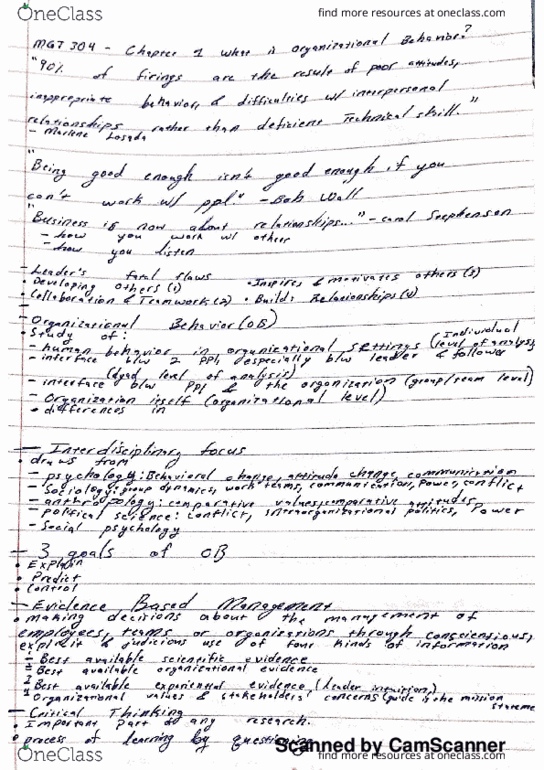 OneClass
find more resources at oneclass.com
MGT 304 - Chapter 1 what is Organizational Behavior?
"90% of firings are the result of poor attitudes,
inappropriate behaviors & difficulties w/ interpersonal
relationships rather than deficient Technical skill."
- Marlene Losada
"Being good enough isn't good enough if you
can't work w/ ppl" - Bob Wall
"Business is now about relationships..." - Carol Stephenson
- how you work w/ others
- how you listen
- Leader's fatal flaws
• Developing others (1) • Inspires & motivates others (3)
• Collaboration & Teamwork (2) • Builds Relationships (4)
- Organizational Behavior (OB)
• Study of:
- human behavior in organizational settings (Individual level of analysis)
- interface b/w 2 ppl, especially b/w leader & follower
(dyad level of analysis)
- interface b/w ppl & the organization (group/team level)
- Organization itself (organizational level)
• differences in
- Interdisciplinary focus
• draws from
- psychology: Behavioral change, attitude change, communication
- Sociology: group dynamics, work teams, communication, power, conflict
- anthropology: comparative values, comparative attitudes
- political science: conflict, intraorganizational politics, Power
- Social psychology
- 3 goals of OB
• Explain
• Predict
• Control
- Evidence Based Management
• making decisions about the management of
employees, teams or organizations through conscientious,
explicit & judicious use of four kinds of information
- Best available scientific evidence
- Best available organizational evidence
- Best available experiential evidence (leader intuition)
- Organizational values & stakeholders' concerns (guide is the mission
statement
- Critical Thinking
• Important Part of any research.
• process of learning by questioning
Scanned by CamScanner
OneClass
find more resources at oneclass.com